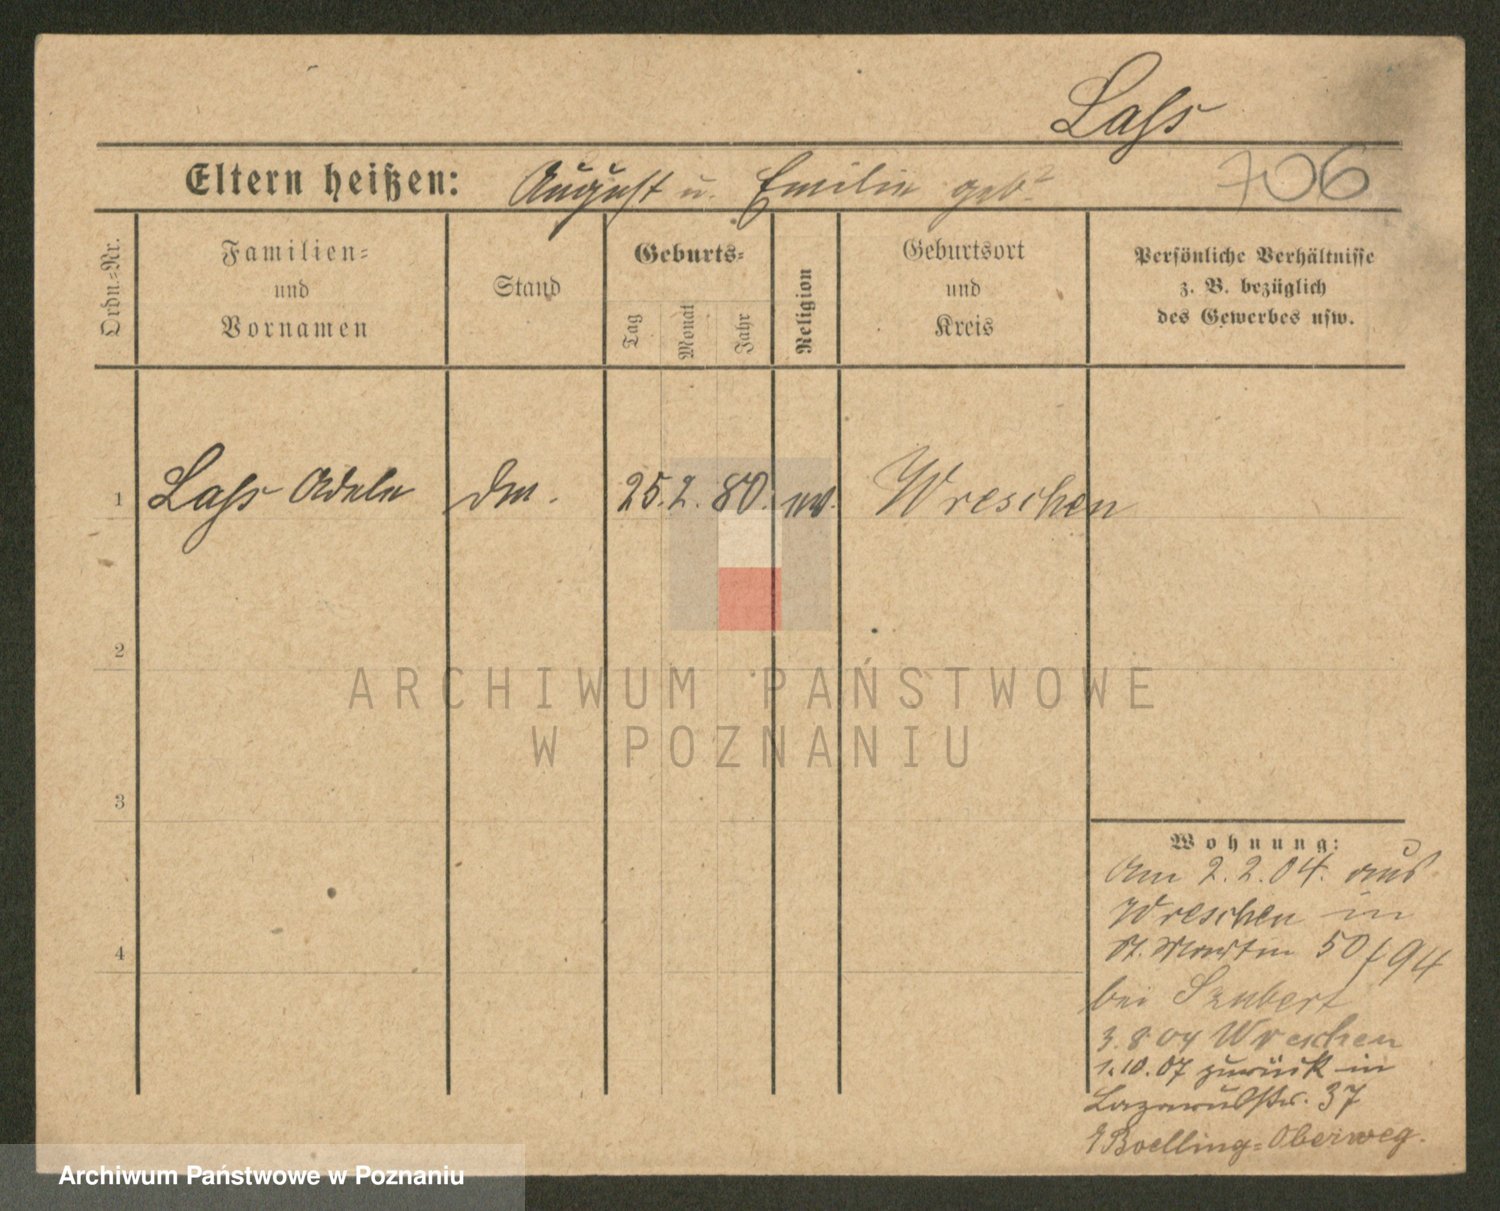 Lass
706
Eltern heißen: August u. Emilie geb.
Ordn.-Nr.
Familien-
und
Vornamen
Stand
Geburts-
Tag
Monat
Jahr
Religion
Geburtsort
und
Kreis
Persönliche Verhältnisse
z. B. bezüglich
des Gewerbes usw.
1 Lass Adele 25. 2. 80. Wreschen
2
ARCHIWUM PAŃSTWOWE
W POZNANIU
3
Wohnung:
Am 2.2.04. aus
Wreschen in
St. Martin 50/94
4
bei
3.8 04 Wreschen
1.10.07 zurück in
Lazarusstr. 37
Boelling-Oberweg.
Archiwum Państwowe w Poznaniu